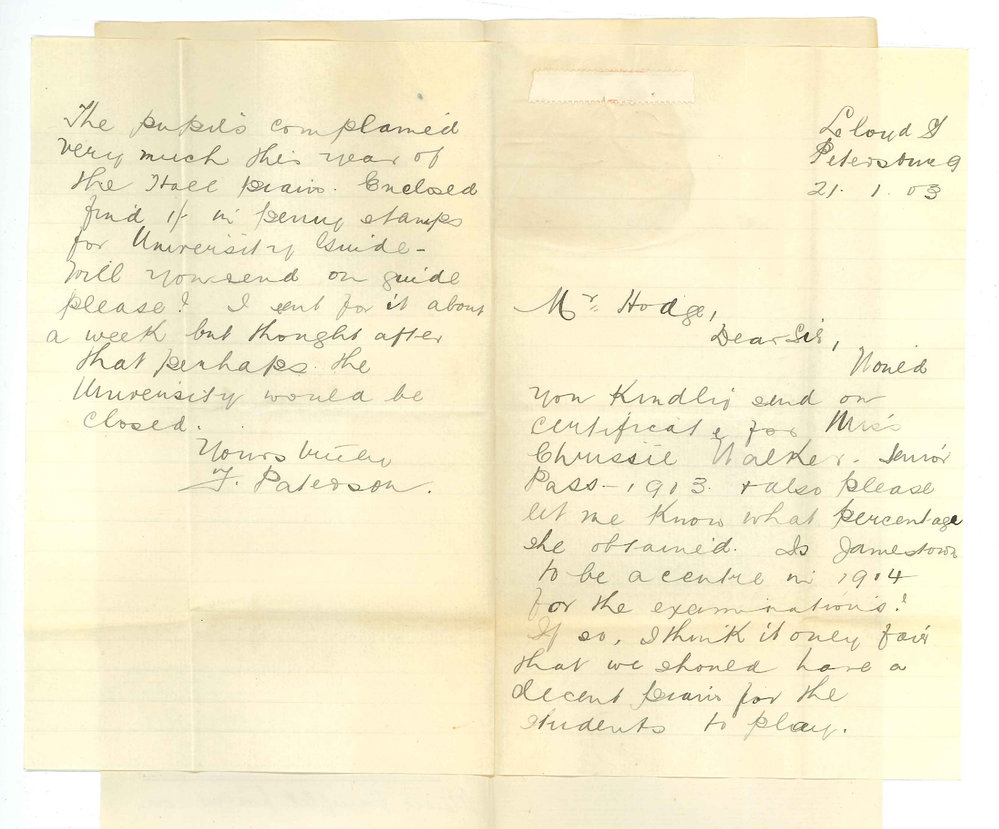 Lloyd St
Petersburg
21. 1. 03
Mr. Hodge,
Dear Sir,
Would
you kindly send on
certificate for Miss
Chrissie Walker. Senior
Pass - 1913. & also please
let me know what percentage
she obtained. Is Jamestown
to be a centre in 1914
for the examinations?
If so, I think it only fair
that we should have a
decent piano for the
students to play.
The pupils complained
very much this year of
the Hall piano. Enclosed
find 1/- in penny stamps
for University Guide -
Will you send on guide
please? I sent for it about
a week but thought after
that perhaps the
University would be
closed.
Yours truly
F. Paterson.